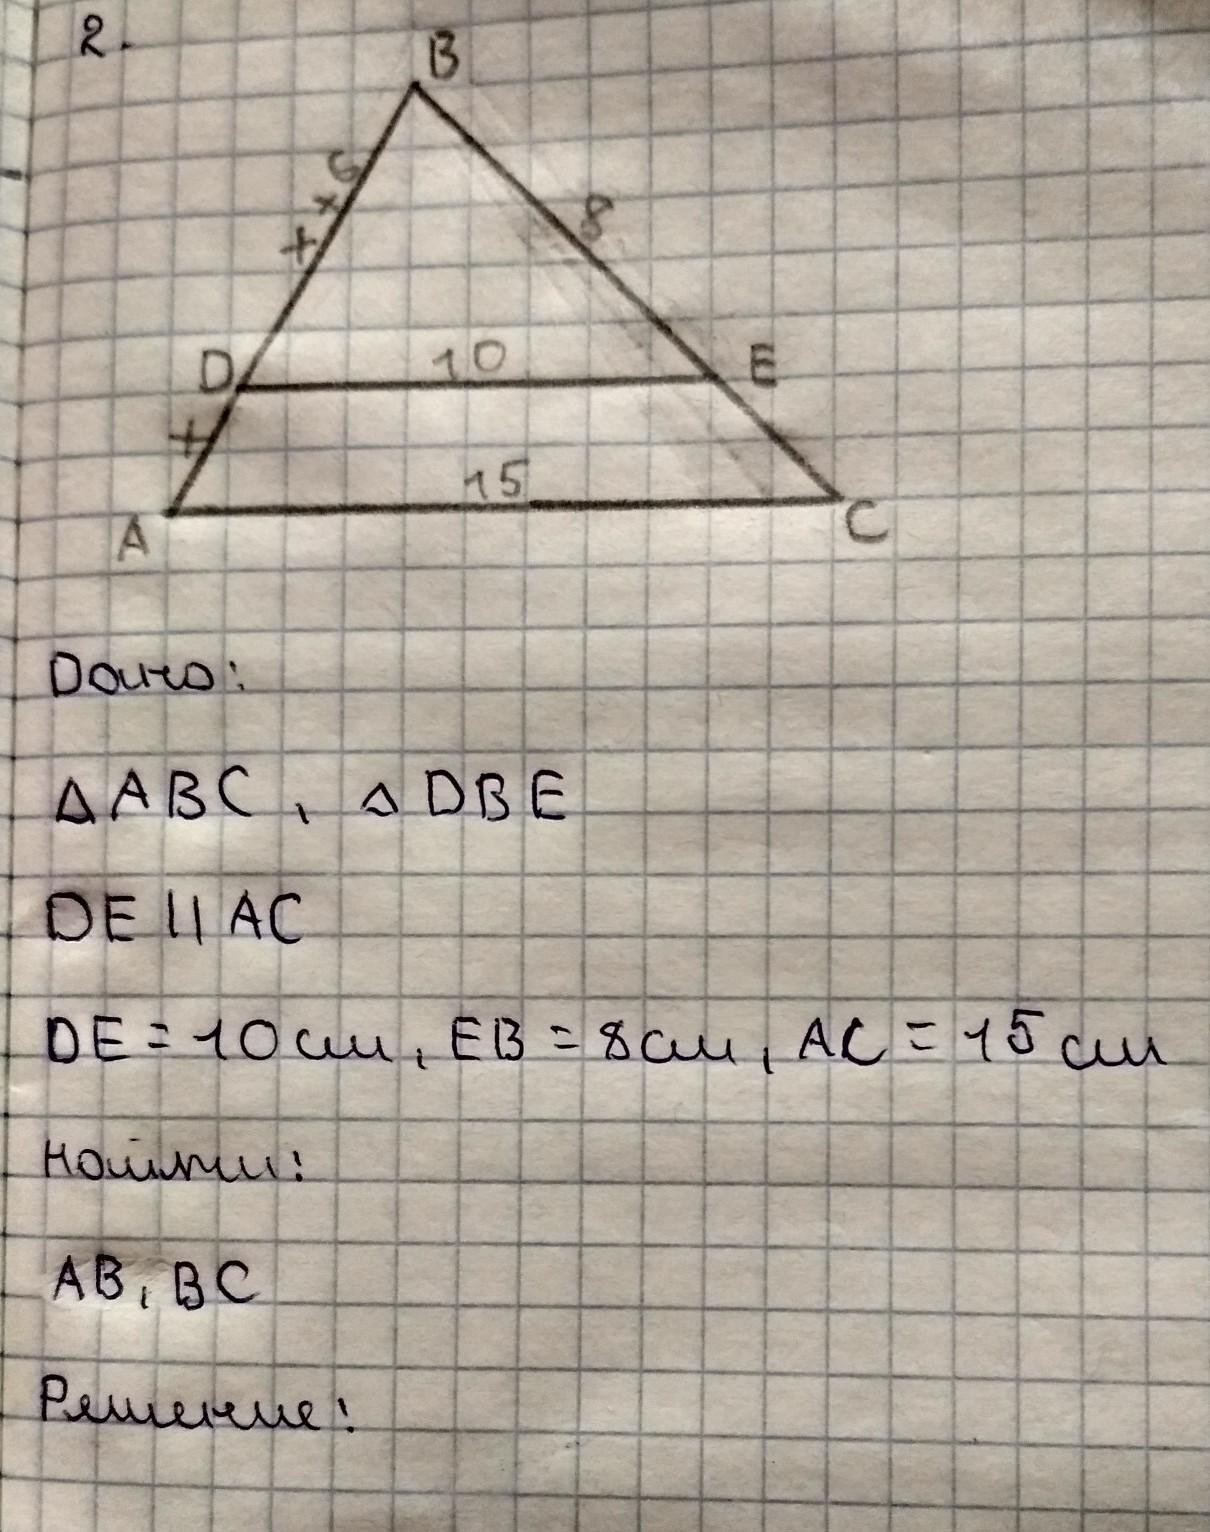 2.
B
6
8
D 10 E
15
A C
Дано:
△ABC, △DBE
DE || AC
DE = 10 см, EB = 8 см, AC = 15 см
Найти:
AB, BC
Решение: